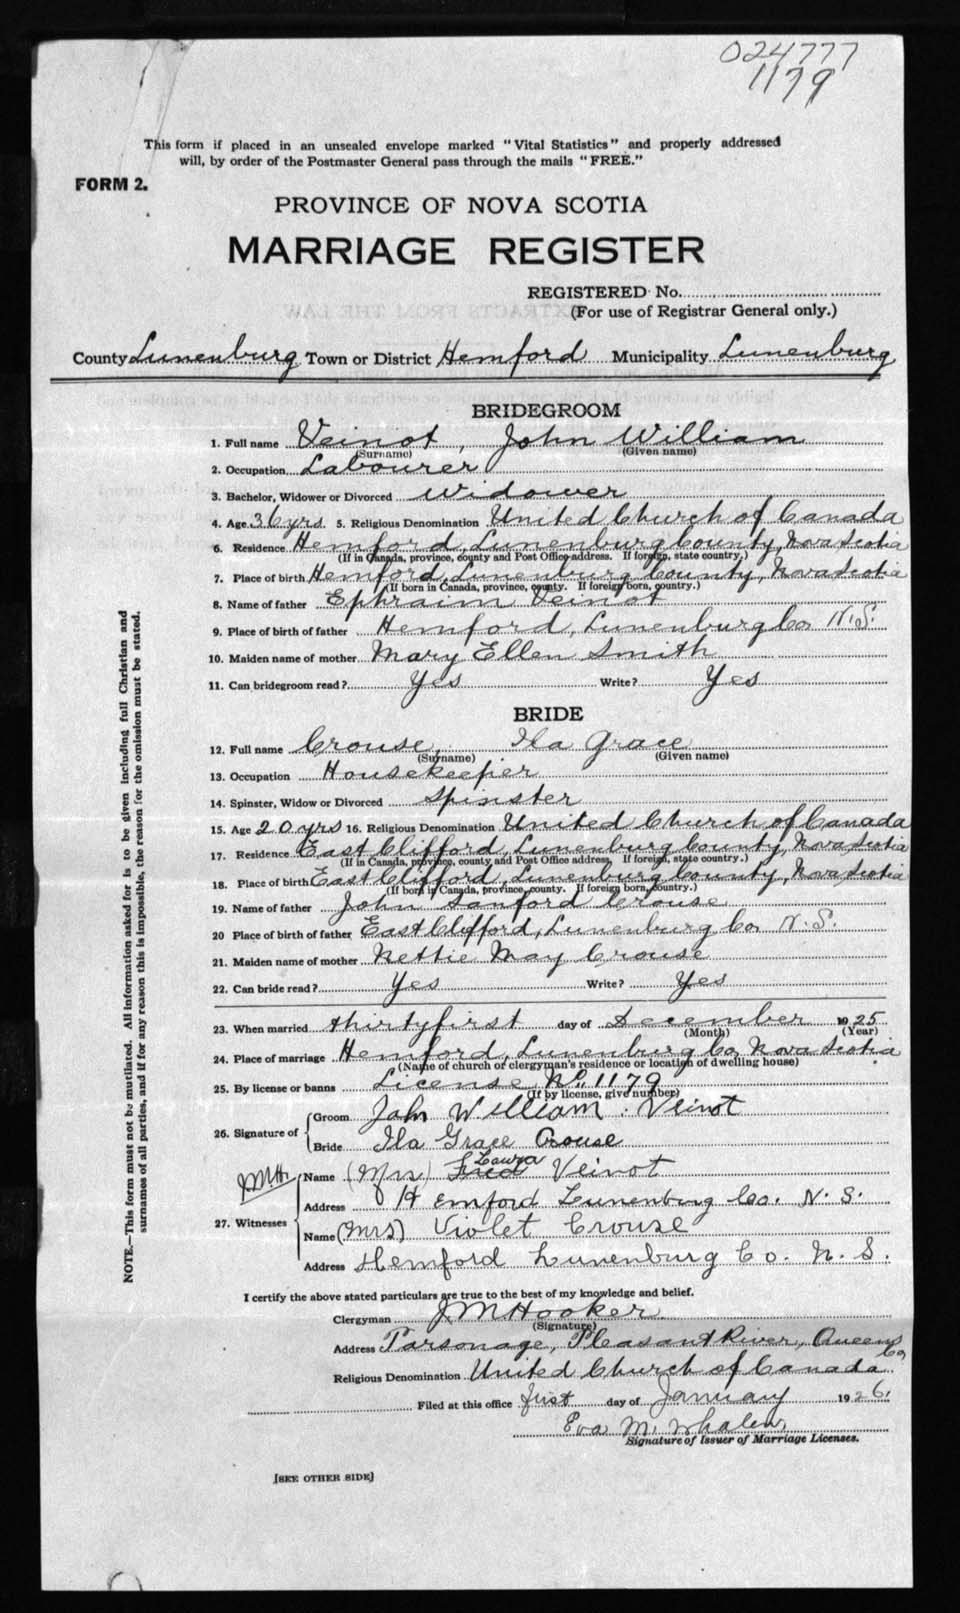 024777
1179
This form if placed in an unsealed envelope marked "Vital Statistics" and properly addressed
will, by order of the Postmaster General pass through the mails "FREE."
FORM 2.
PROVINCE OF NOVA SCOTIA
MARRIAGE REGISTER
REGISTERED No.
(For use of Registrar General only.)
County Lunenburg Town or District Hemford Municipality Lunenburg
BRIDEGROOM
1. Full name Veinot, John William
(Surname) (Given name)
2. Occupation Labourer
3. Bachelor, Widower or Divorced Widower
4. Age 36 yrs. 5. Religious Denomination United Church of Canada
6. Residence Hemford, Lunenburg County, Nova Scotia
(If in Canada, province, county and Post Office address. If foreign, state country.)
7. Place of birth Hemford, Lunenburg County, Nova Scotia
(If born in Canada, province, county. If foreign born, country.)
8. Name of father Ephraim Veinot
9. Place of birth of father Hemford, Lunenburg Co N.S.
10. Maiden name of mother Mary Ellen Smith
11. Can bridegroom read? Yes Write? Yes
BRIDE
12. Full name Crouse, Ila Grace
(Surname) (Given name)
13. Occupation Housekeeper
14. Spinster, Widow or Divorced Spinster
15. Age 20 yrs 16. Religious Denomination United Church of Canada
17. Residence East Clifford, Lunenburg County, Nova Scotia
(If in Canada, province, county and Post Office address. If foreign, state country.)
18. Place of birth East Clifford, Lunenburg County, Nova Scotia
(If born in Canada, province, county. If foreign born, country.)
19. Name of father John Sanford Crouse
20 Place of birth of father East Clifford, Lunenburg Co N.S.
21. Maiden name of mother Nettie May Crouse
22. Can bride read? Yes Write? Yes
23. When married thirtyfirst day of December 1925
(Month) (Year)
24. Place of marriage Hemford, Lunenburg Co, Nova Scotia
(Name of church of clergyman's residence or location of dwelling house)
25. By license or banns License No. 1179
(If by license, give number)
26. Signature of
Groom John William Veinot
Bride Ila Grace Crouse
27. Witnesses
JMH
Laura
Name (Mrs) Fred Veinot
Address Hemford Lunenburg Co. N. S.
Name (Mrs) Violet Crouse
Address Hemford Lunenburg Co. N. S.
I certify the above stated particulars are true to the best of my knowledge and belief.
Clergyman J M Hooker
(Signature)
Address Parsonage, Pleasant River, Queens Co
Religious Denomination United Church of Canada
Filed at this office first day of January 1926.
Eva M. Whalen
Signature of Issuer of Marriage Licenses.
[SEE OTHER SIDE]
NOTE.—This form must not be mutilated. All information asked for is to be given including full Christian and
surnames of all parties, and if for any reason this is impossible, the reason for the omission must be stated.